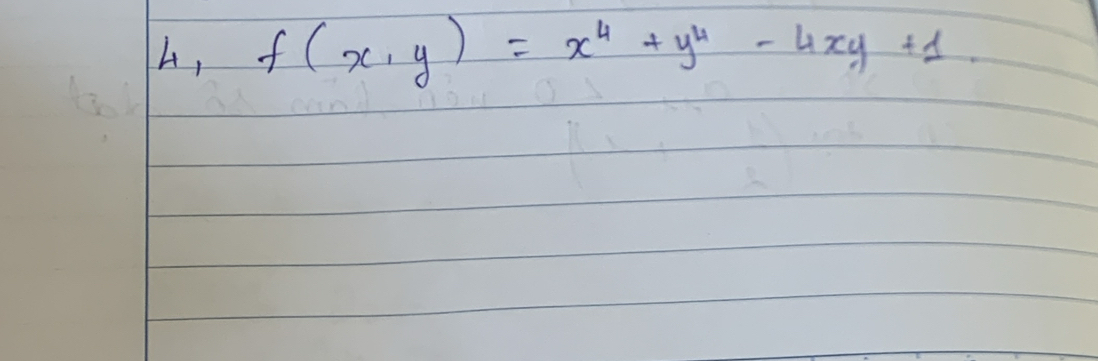 4, f(x,y) = x⁴ + y⁴ - 4xy + 1.